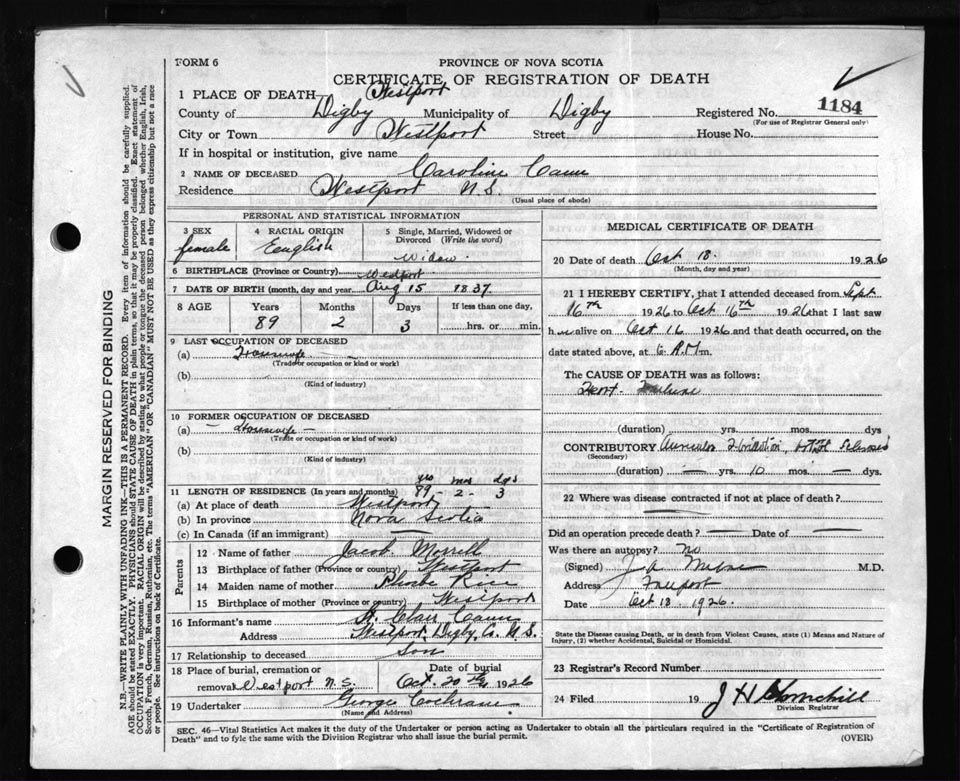 FORM 6
PROVINCE OF NOVA SCOTIA
CERTIFICATE OF REGISTRATION OF DEATH
1 PLACE OF DEATH— Westport
County of Digby Municipality of Digby Registered No. 1184
(For use of Registrar General only)
City or Town Westport Street House No.
If in hospital or institution, give name
2 NAME OF DECEASED Caroline Cann
Residence Westport N.S.
(Usual place of abode)
PERSONAL AND STATISTICAL INFORMATION
3 SEX 4 RACIAL ORIGIN 5 Single, Married, Widowed or Divorced (Write the word)
female English Widow.
6 BIRTHPLACE (Province or Country) Westport
7 DATE OF BIRTH (month, day and year) Aug 15 1837
8 AGE Years Months Days If less than one day,
89 2 3 hrs. or min.
9 LAST OCCUPATION OF DECEASED
(a) Housewife
(Trade or occupation or kind of work)
(b)
(Kind of industry)
10 FORMER OCCUPATION OF DECEASED
(a) — Housewife —
(Trade or occupation or kind of work)
(b)
(Kind of industry)
yrs mos dys
11 LENGTH OF RESIDENCE (In years and months) 89 - 2 - 3
(a) At place of death Westport
(b) In province Nova Scotia
(c) In Canada (if an immigrant)
Parents
12 Name of father Jacob Morrell
13 Birthplace of father (Province or country) Westport
14 Maiden name of mother Phoebe Rice
15 Birthplace of mother (Province or country) Westport
16 Informant's name St. Clair Cann
Address Westport, Digby Co. N.S.
17 Relationship to deceased Son
18 Place of burial, cremation or removal Westport N.S. Date of burial Oct. 20th 1926
19 Undertaker George Cochrane
(Name and Address)
MEDICAL CERTIFICATE OF DEATH
20 Date of death Oct 18. 1926
(Month, day and year)
21 I HEREBY CERTIFY, that I attended deceased from Sept.
16th 1926 to Oct 16th 1926 that I last saw
her alive on Oct 16 1926 and that death occurred, on
date stated above, at 6 A.M m.
The CAUSE OF DEATH was as follows:
Heart Failure
(duration) yrs. mos. dys
CONTRIBUTORY Auricular Fibrillation,
(Secondary)
(duration) — yrs. 10 mos. — dys.
22 Where was disease contracted if not at place of death?
Did an operation precede death? — Date of —
Was there an autopsy? No
(Signed) M.D.
Address Freeport
Date Oct 18. 1926.
State the Disease causing Death, or in death from Violent Causes, state (1) Means and Nature of
Injury, (2) whether Accidental, Suicidal or Homicidal.
23 Registrar's Record Number
24 Filed 19 J H
Division Registrar
SEC. 46—Vital Statistics Act makes it the duty of the Undertaker or person acting as Undertaker to obtain all the particulars required in the "Certificate of Registration of
Death" and to fyle the same with the Division Registrar who shall issue the burial permit.
(OVER)
MARGIN RESERVED FOR BINDING
N.B.—WRITE PLAINLY WITH UNFADING INK—THIS IS A PERMANENT RECORD. Every item of information should be carefully supplied.
AGE should be stated EXACTLY. PHYSICIANS should STATE CAUSE OF DEATH in plain terms, so that it may be properly classified. Exact statement of
OCCUPATION is very important. RACIAL ORIGIN will be described by stating to what people or tongue the deceased person belonged whether English, Irish,
Scotch, French, German, Russian, Ruthenian, etc. The terms "AMERICAN" or "CANADIAN" MUST NOT BE USED as they express citizenship but not a race
or people. See instructions on back of Certificate.